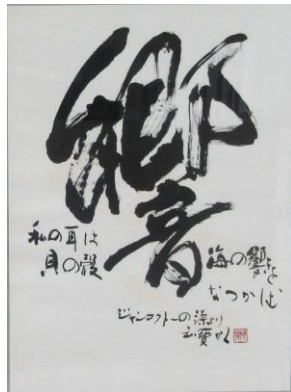 響
私の耳は
貝の殻
海の響を
なつかしむ
ジャンコクトーの詩より
かく